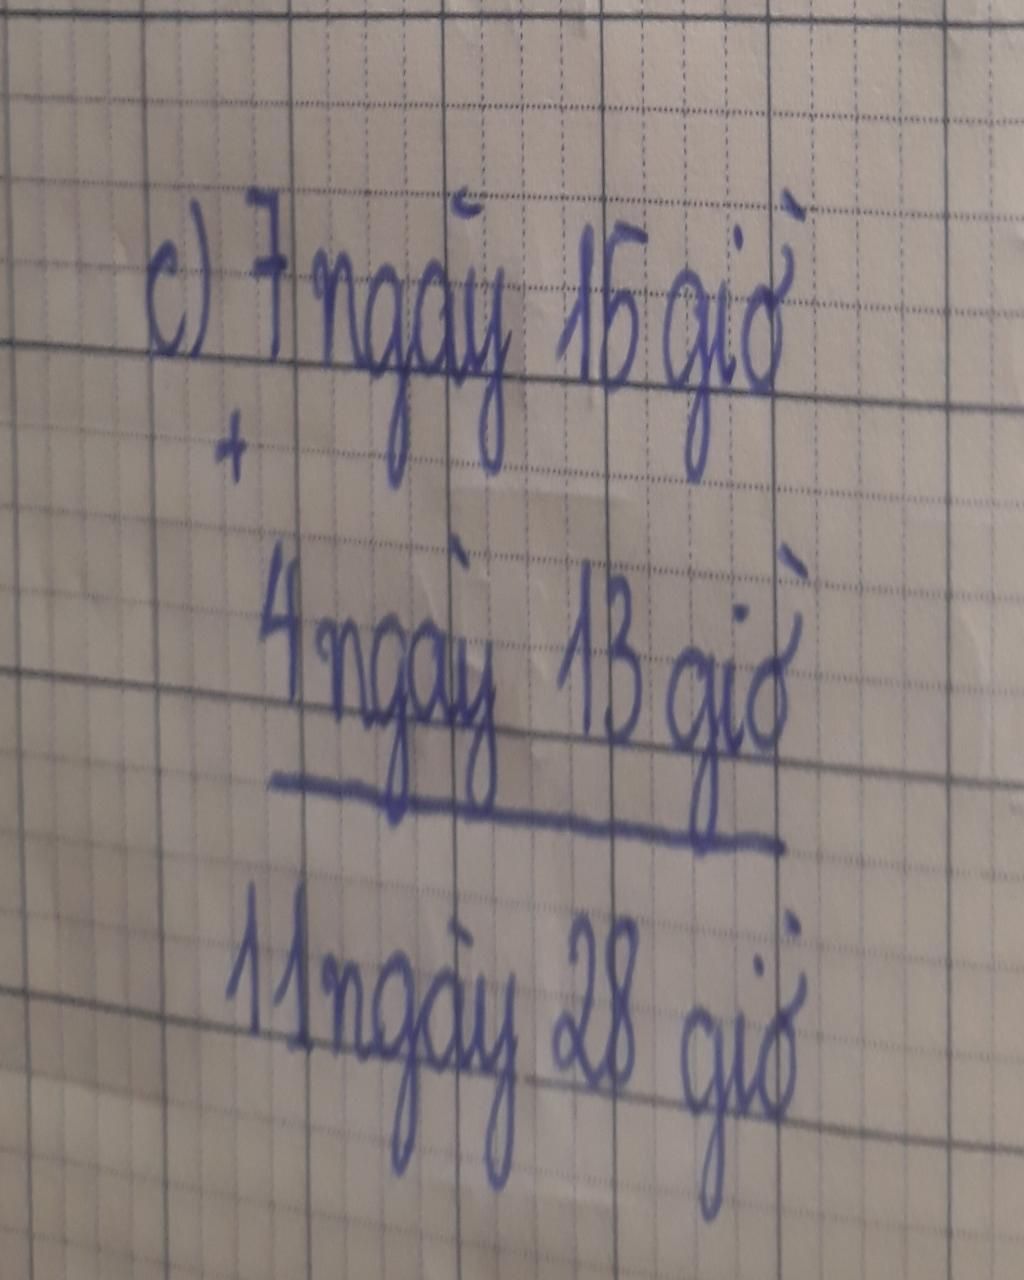 c) 7 ngày 15 giờ
+
4 ngày 13 giờ
11 ngày 28 giờ